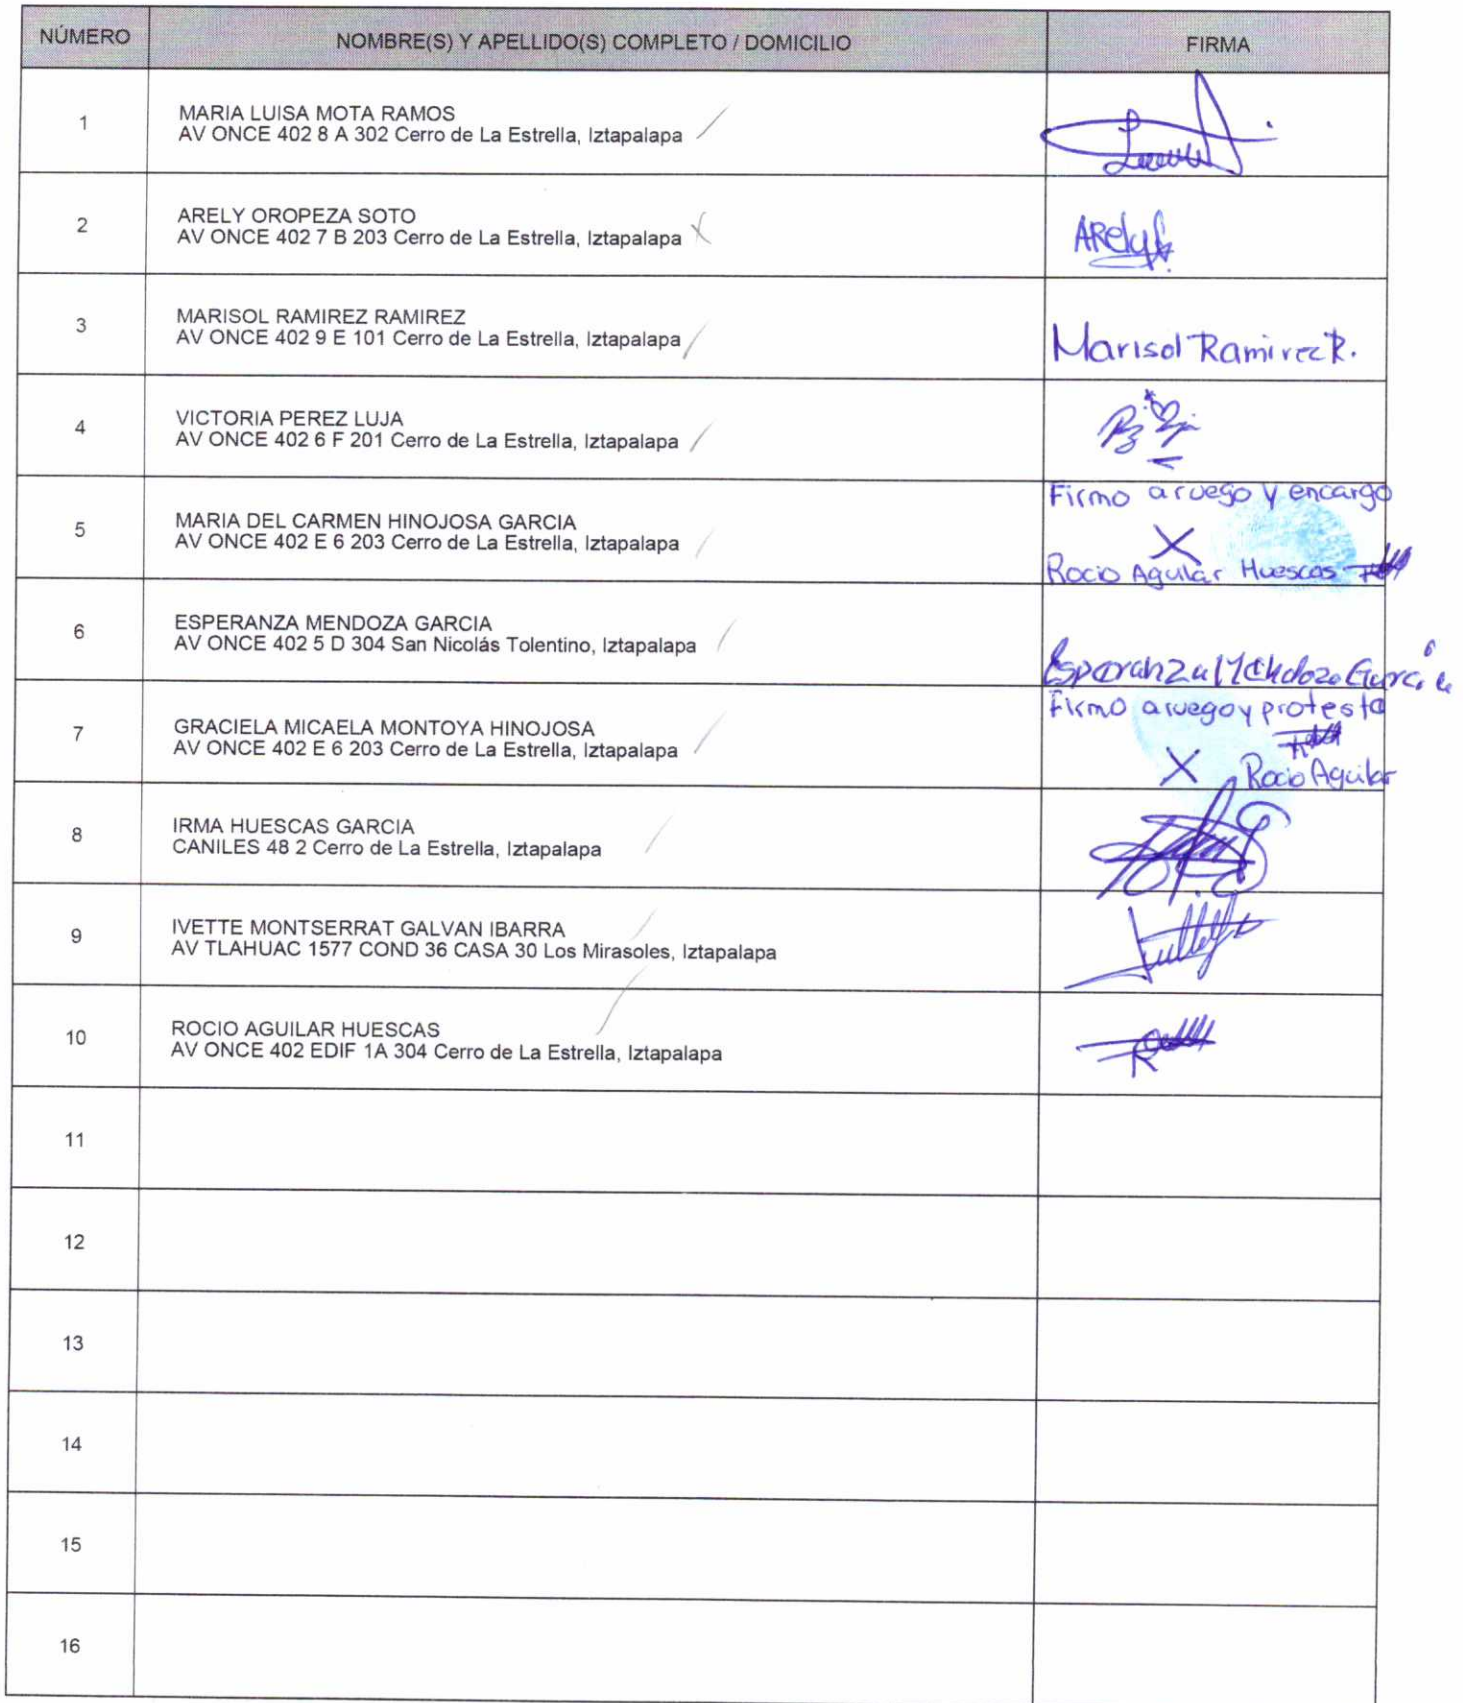 NÚMERO NOMBRE(S) Y APELLIDO(S) COMPLETO / DOMICILIO FIRMA
1 MARIA LUISA MOTA RAMOS
AV ONCE 402 8 A 302 Cerro de La Estrella, Iztapalapa
2 ARELY OROPEZA SOTO
AV ONCE 402 7 B 203 Cerro de La Estrella, Iztapalapa
ARely
3 MARISOL RAMIREZ RAMIREZ
AV ONCE 402 9 E 101 Cerro de La Estrella, Iztapalapa
Marisol Ramirez R.
4 VICTORIA PEREZ LUJA
AV ONCE 402 6 F 201 Cerro de La Estrella, Iztapalapa
5 MARIA DEL CARMEN HINOJOSA GARCIA
AV ONCE 402 E 6 203 Cerro de La Estrella, Iztapalapa
Firmo a ruego y encargo
X
Rocio Aguilar Huescas
6 ESPERANZA MENDOZA GARCIA
AV ONCE 402 5 D 304 San Nicolás Tolentino, Iztapalapa
Esperanza Mendoza Garcia
7 GRACIELA MICAELA MONTOYA HINOJOSA
AV ONCE 402 E 6 203 Cerro de La Estrella, Iztapalapa
Firmo a ruego y protesta
X Rocio Aguilar
8 IRMA HUESCAS GARCIA
CANILES 48 2 Cerro de La Estrella, Iztapalapa
9 IVETTE MONTSERRAT GALVAN IBARRA
AV TLAHUAC 1577 COND 36 CASA 30 Los Mirasoles, Iztapalapa
10 ROCIO AGUILAR HUESCAS
AV ONCE 402 EDIF 1A 304 Cerro de La Estrella, Iztapalapa
11
12
13
14
15
16